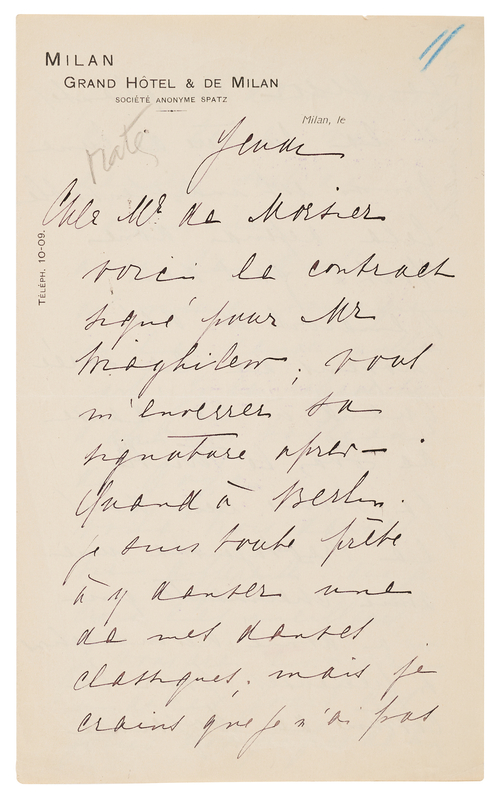 MILAN
GRAND HÔTEL & DE MILAN
SOCIÉTÉ ANONYME SPATZ
Milan, le
Jeudi
TÉLÉPH. 10-09.
Cher Mr de Morsier
voici le contract
signé pour Mr
Diaghilew, vous
m'enverrez sa
signature après —
Quand à Berlin.
je suis toute prête
à y danser une
de mes danses
classiques, mais je
crains que je n'ai pas